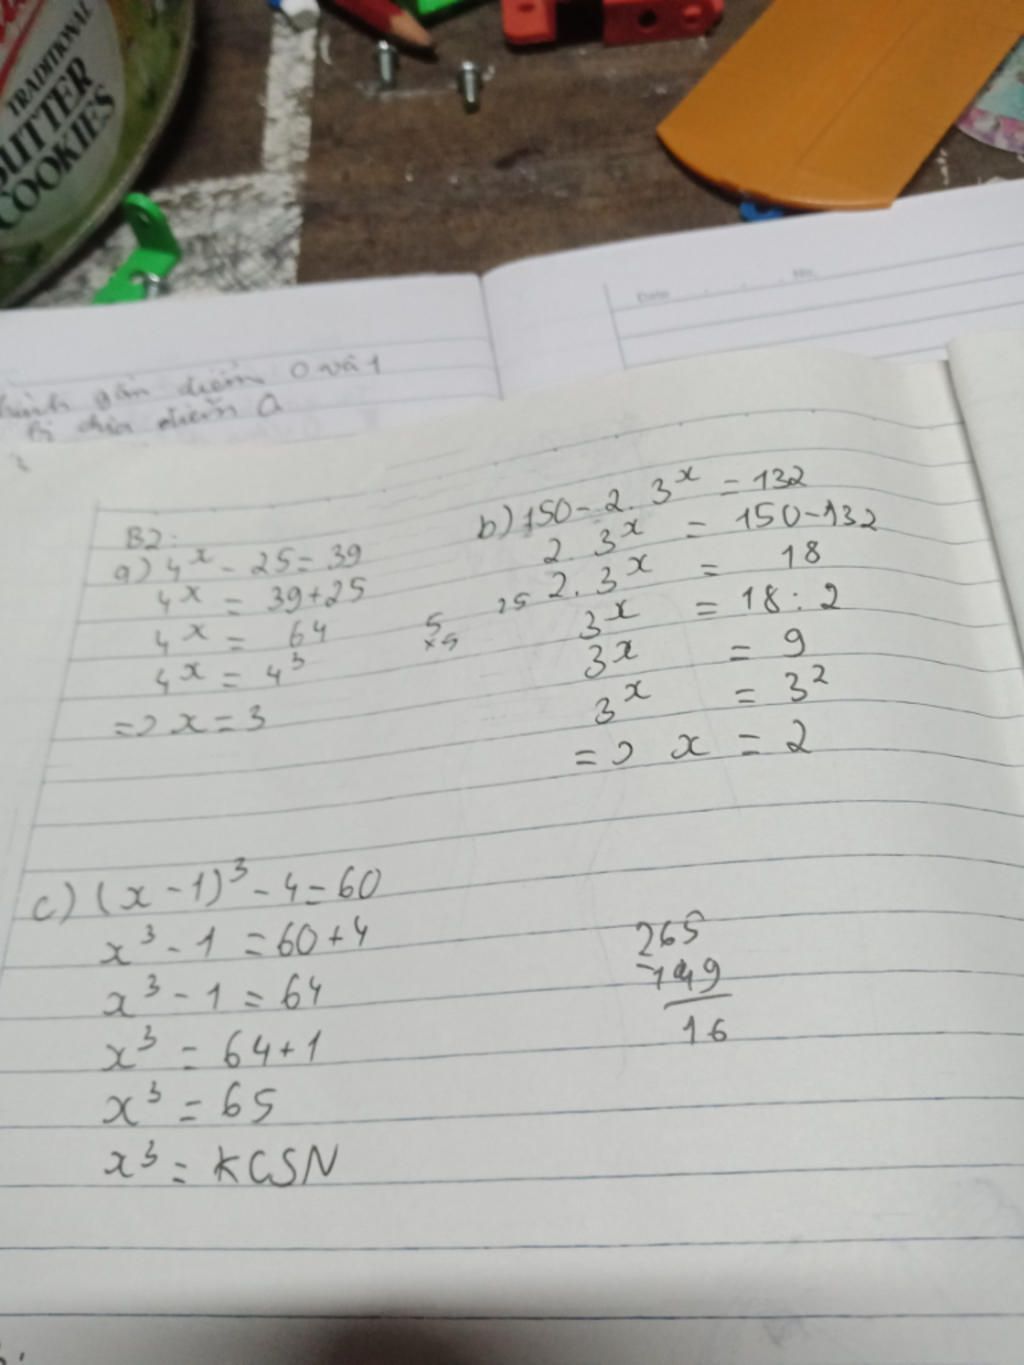 TRADITIONAL
BUTTER
COOKIES
Date No.
gần điểm 0 và 1
điểm 0
B2:
a) 4^x - 25 = 39
4^x = 39+25
4^x = 64
4^x = 4^3
=> x = 3
5
x5
25
b) 150 - 2. 3^x = 132
2. 3^x = 150-132
2. 3^x = 18
3^x = 18 : 2
3^x = 9
3^x = 3^2
=> x = 2
c) (x - 1)^3 - 4 = 60
x^3 - 1 = 60 + 4
x^3 - 1 = 64
x^3 = 64 + 1
x^3 = 65
x^3 = KCSN
265
-149
16